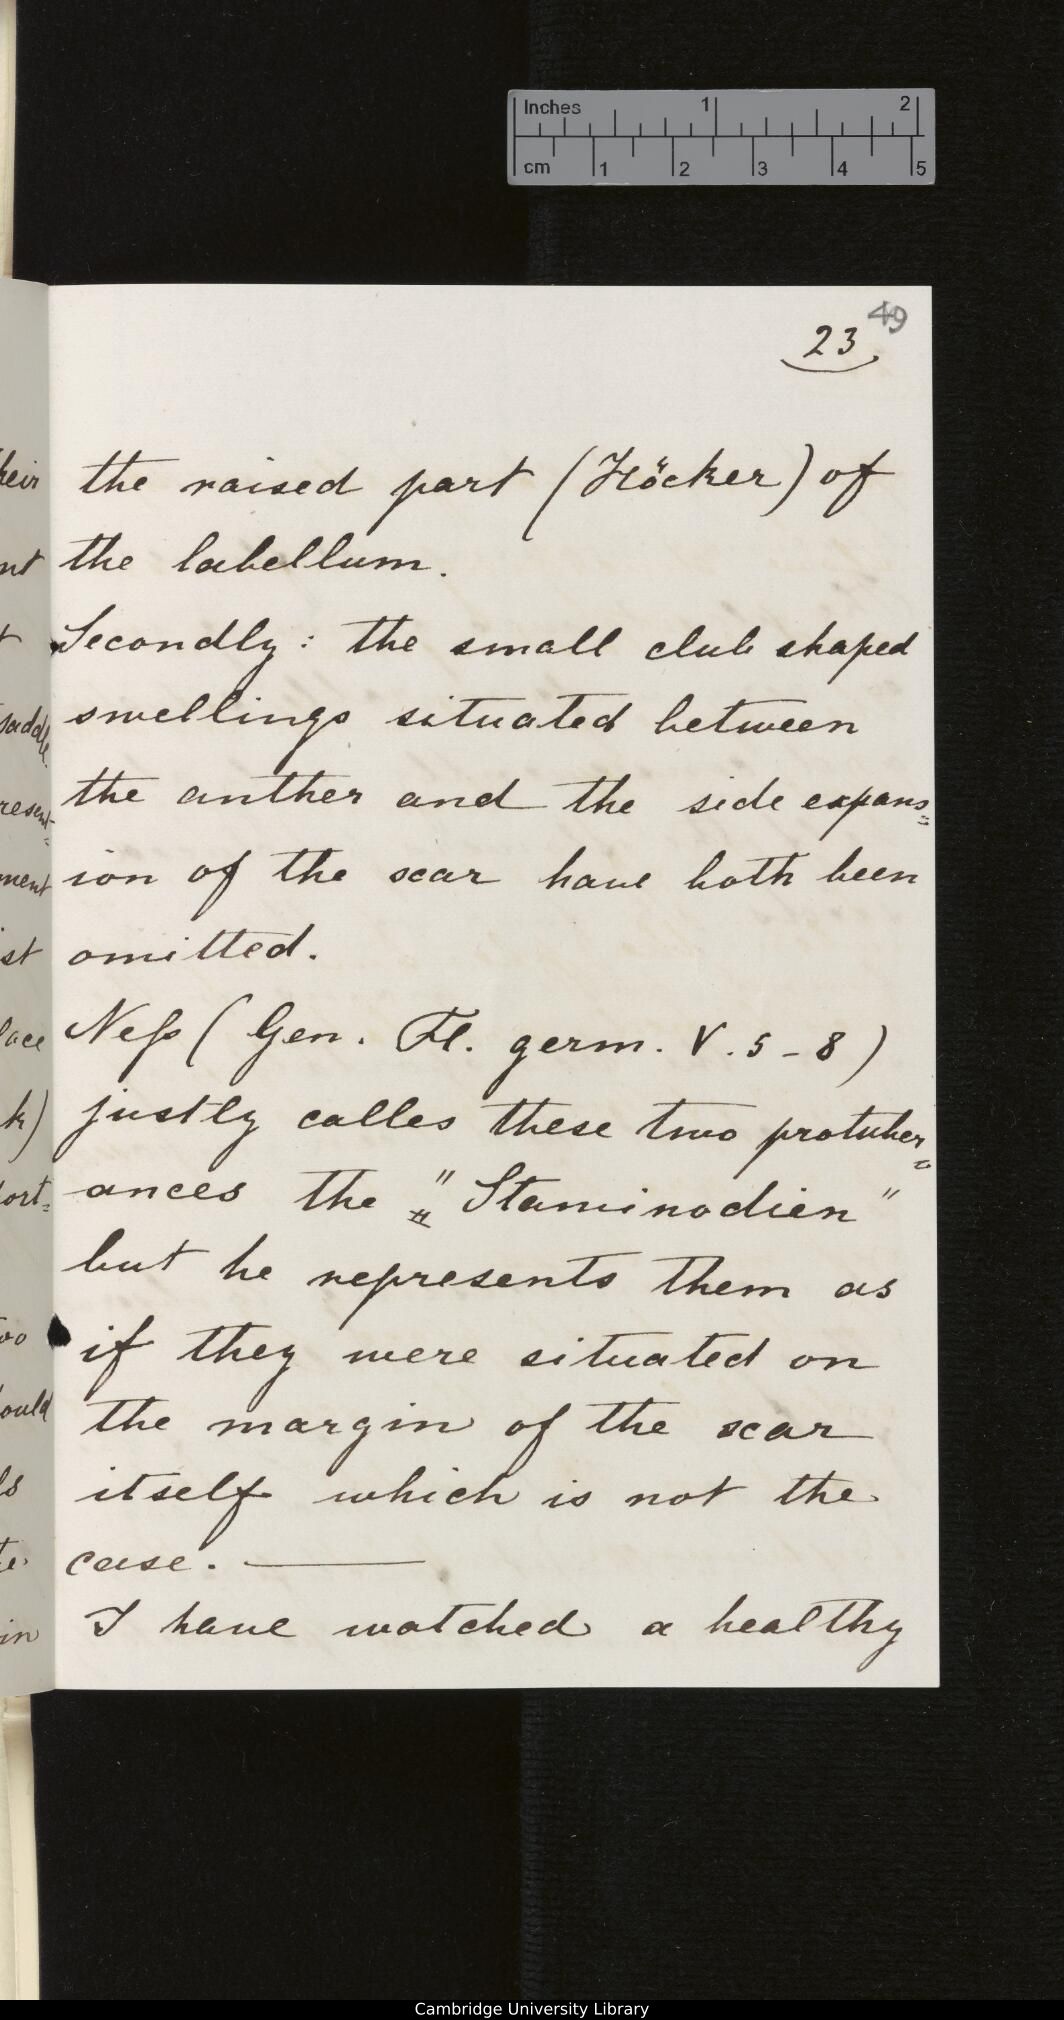 Inches 1 2
cm 1 2 3 4 5
49
23
the raised part (Höcker) of
the labellum.
Secondly: the small club shaped
swellings situated between
the anther and the side expans=
ion of the scar have both been
omitted.
Neſs (Gen. Fl. germ. V. 5-8)
justly calles these two protuber=
ances the "Staminodien"
but he represents them as
if they were situated on
the margin of the scar
itself which is not the
case. —
I have watched a healthy
heir
nt
t
saddle
resent=
ment
ist
lace
k)
ort=
oo
ould
ls
te
in
Cambridge University Library